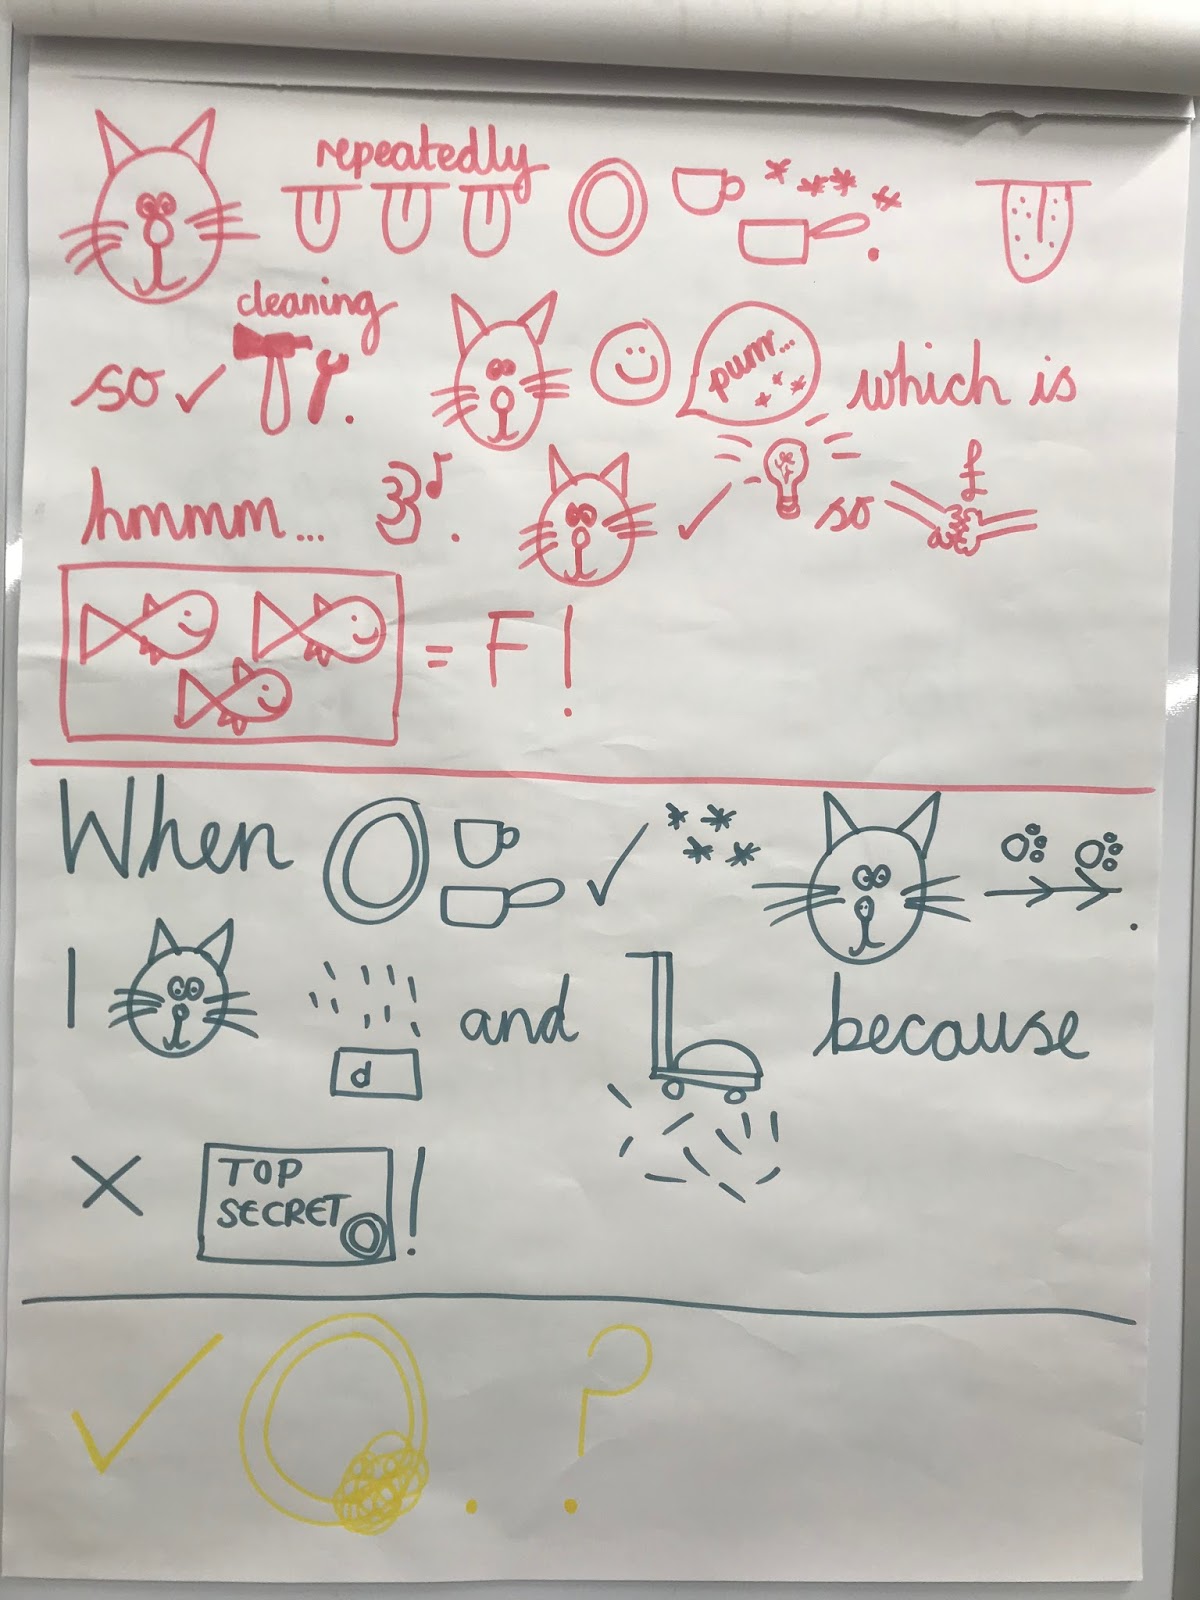 repeatedly
cleaning
so purr... which is
hmmm... so £
= F!
When
I d and because
TOP
SECRET !
?